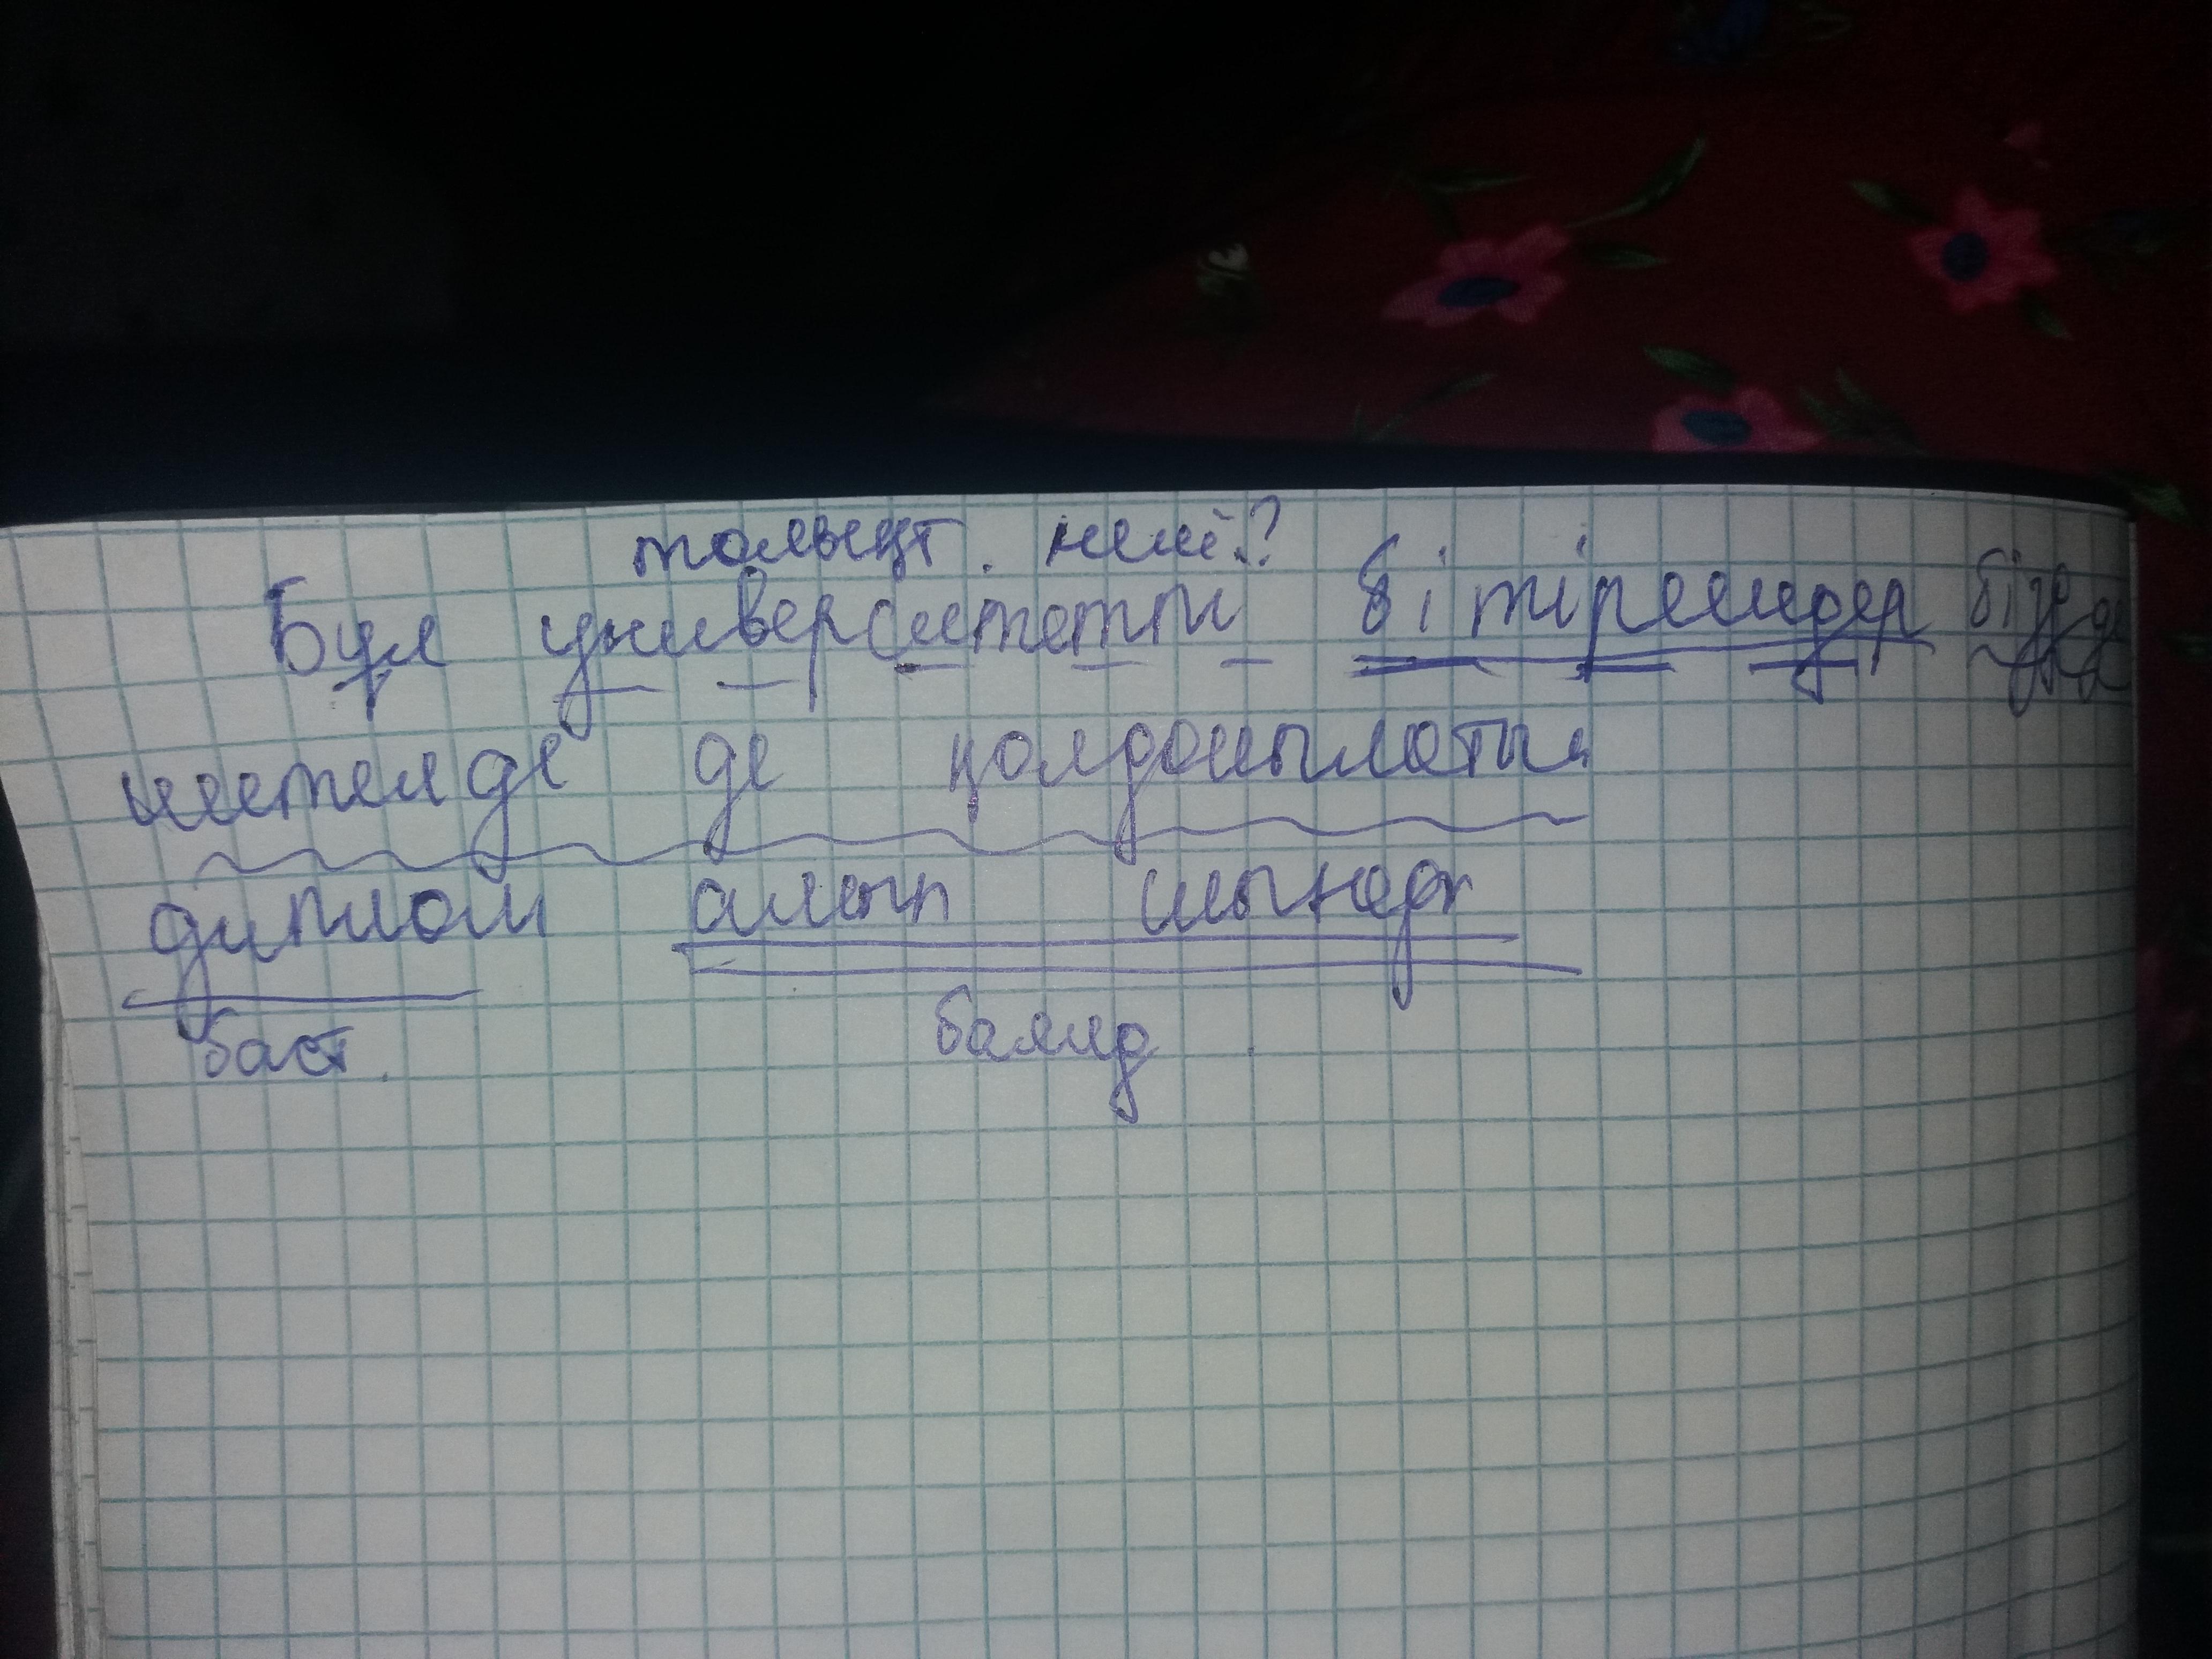 толықт. нені?
Бұл университетті бітіргендер бізде де
шетелде де қолданылатын
диплом алып шығады
баст. баянд.